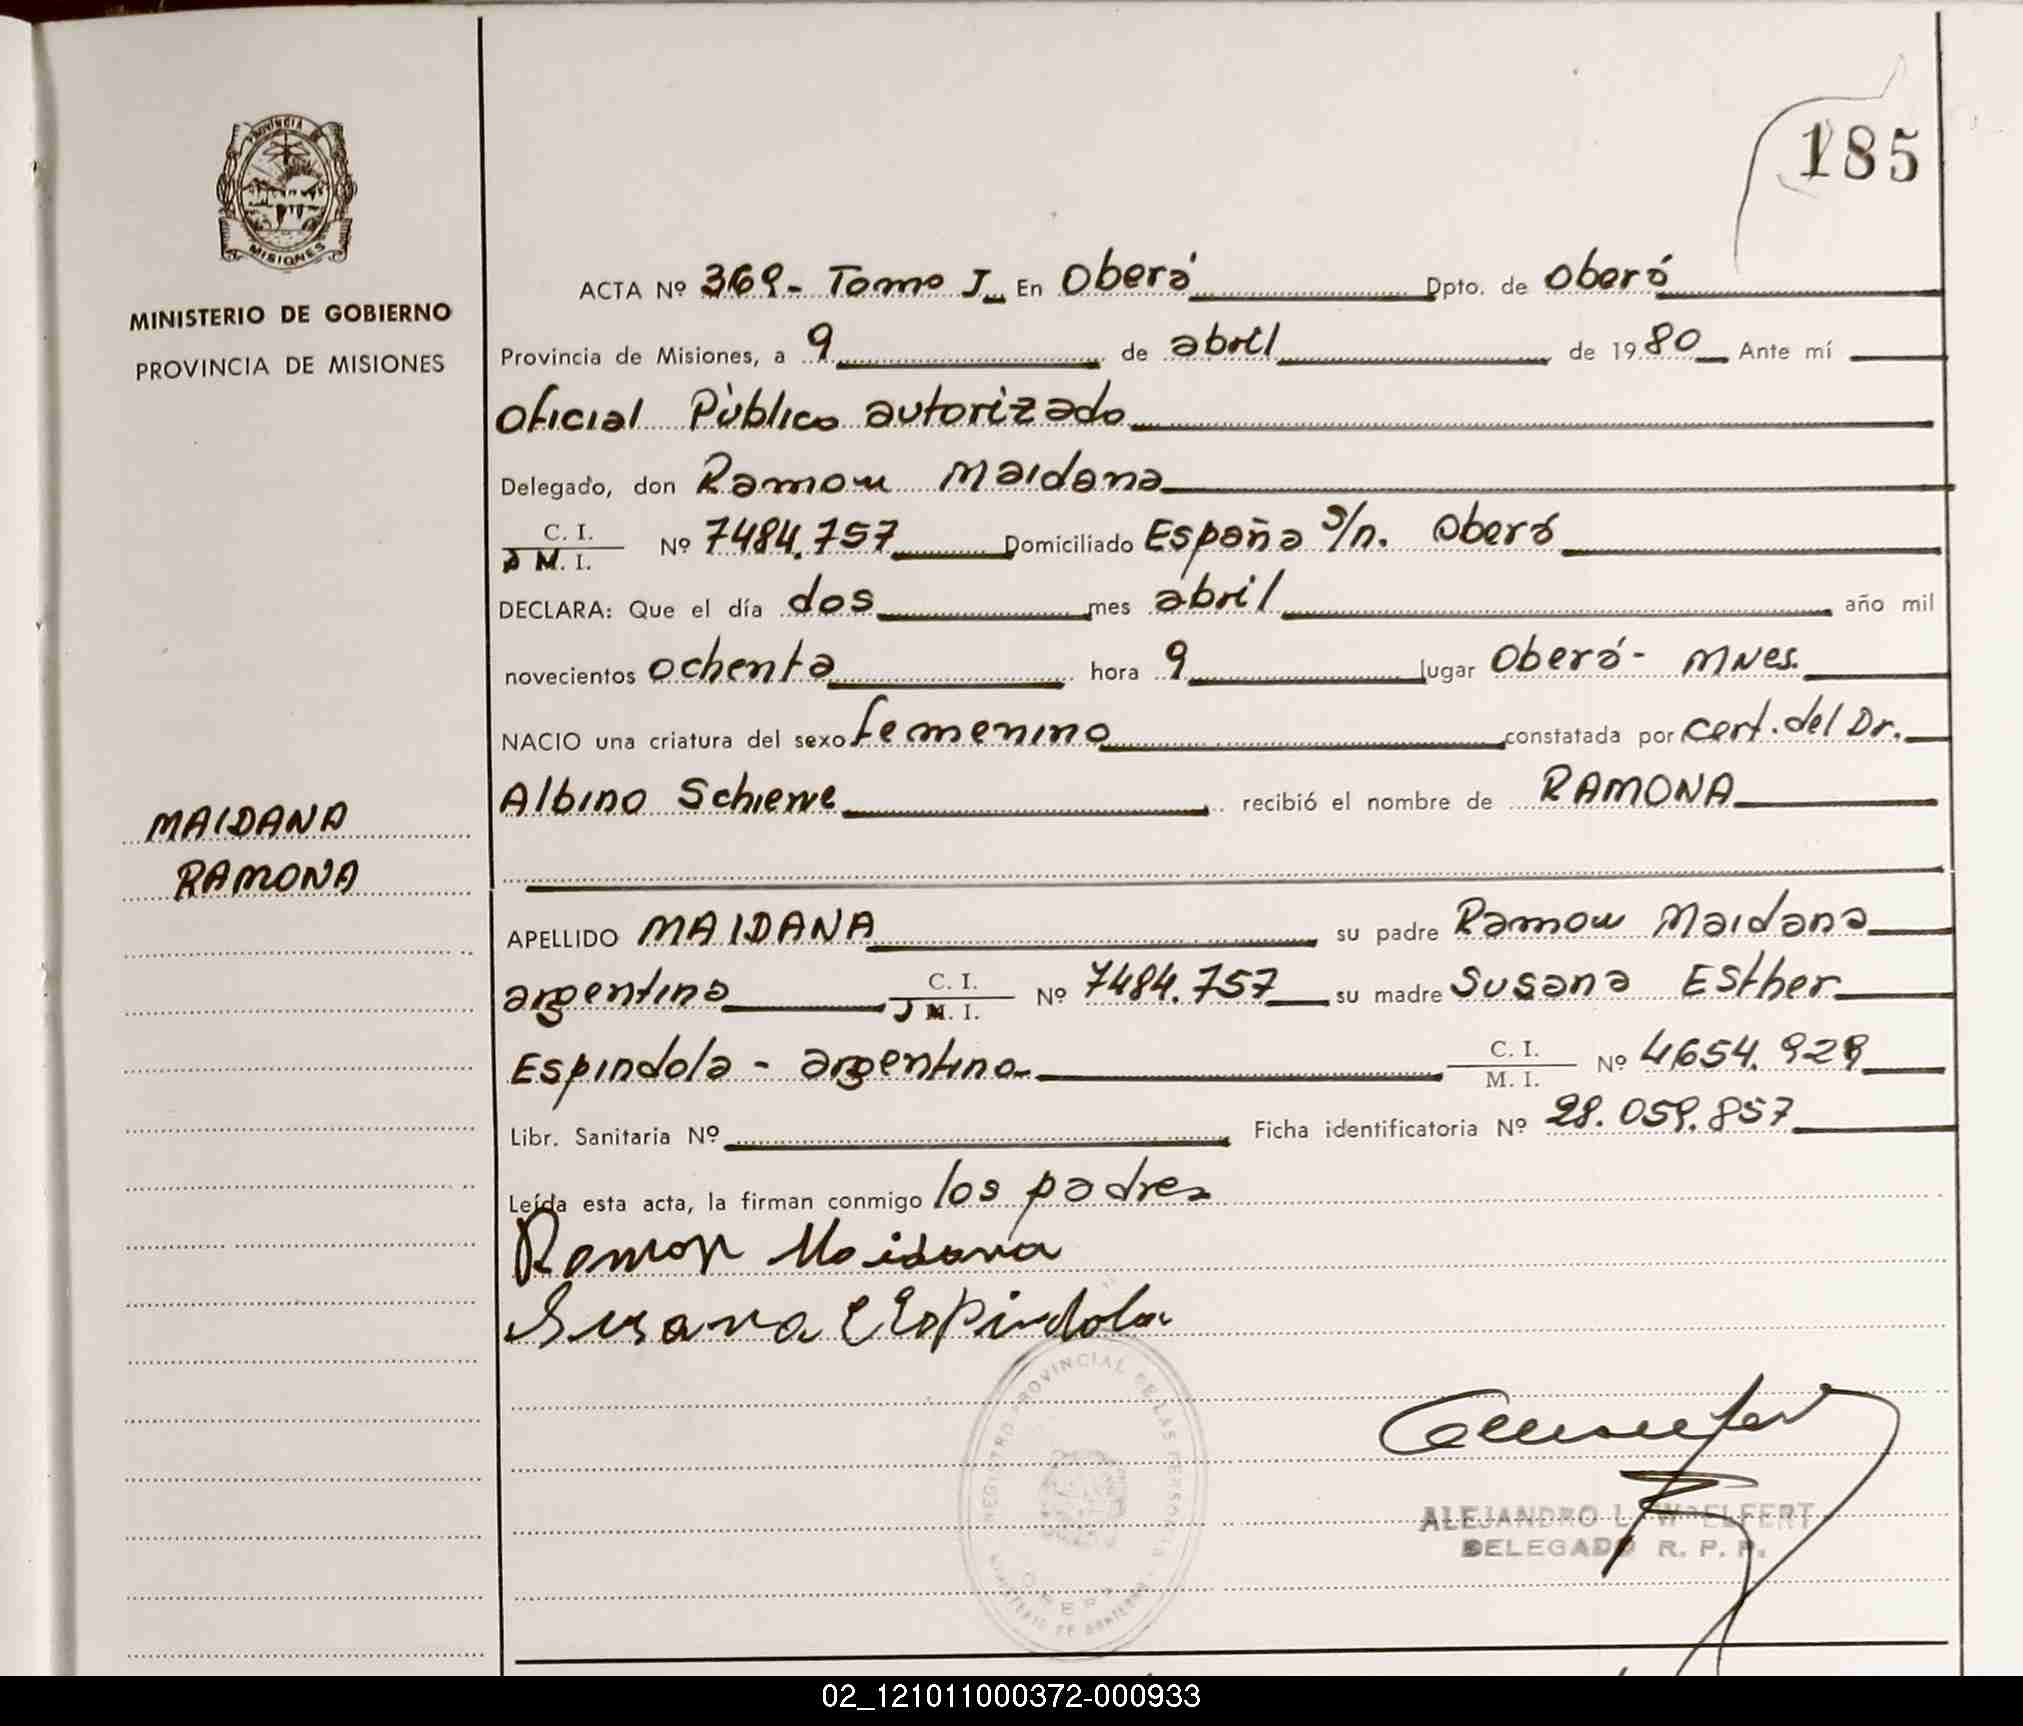 185
PROVINCIA DE
MISIONES
MINISTERIO DE GOBIERNO
PROVINCIA DE MISIONES
ACTA Nº 369 - Tomo I En Oberá Dpto. de Oberá
Provincia de Misiones, a 9 de abril de 1980 Ante mí
Oficial Público autorizado
Delegado, don Ramon Maidana
C. I.
M. I. Nº 7484.757 Domiciliado España s/n. Oberá
DECLARA: Que el día dos mes abril año mil
novecientos ochenta hora 9 lugar Oberá - Mnes.
NACIO una criatura del sexo femenino constatada por cert. del Dr.
Albino recibió el nombre de RAMONA
MAIDANA
RAMONA
APELLIDO MAIDANA su padre Ramon Maidana
argentino C. I.
M. I. Nº 7484.757 su madre Susana Esther
Espindola - argentina C. I.
M. I. Nº
Libr. Sanitaria Nº Ficha identificatoria Nº 28.059.857
Leída esta acta, la firman conmigo los padres
Ramon Maidana
Susana E Espindola
REGISTRO PROVINCIAL DE LAS PERSONAS
MINISTERIO DE GOBIERNO
ALEJANDRO L. WOELFERT
DELEGADO R. P. P.
02_121011000372-000933